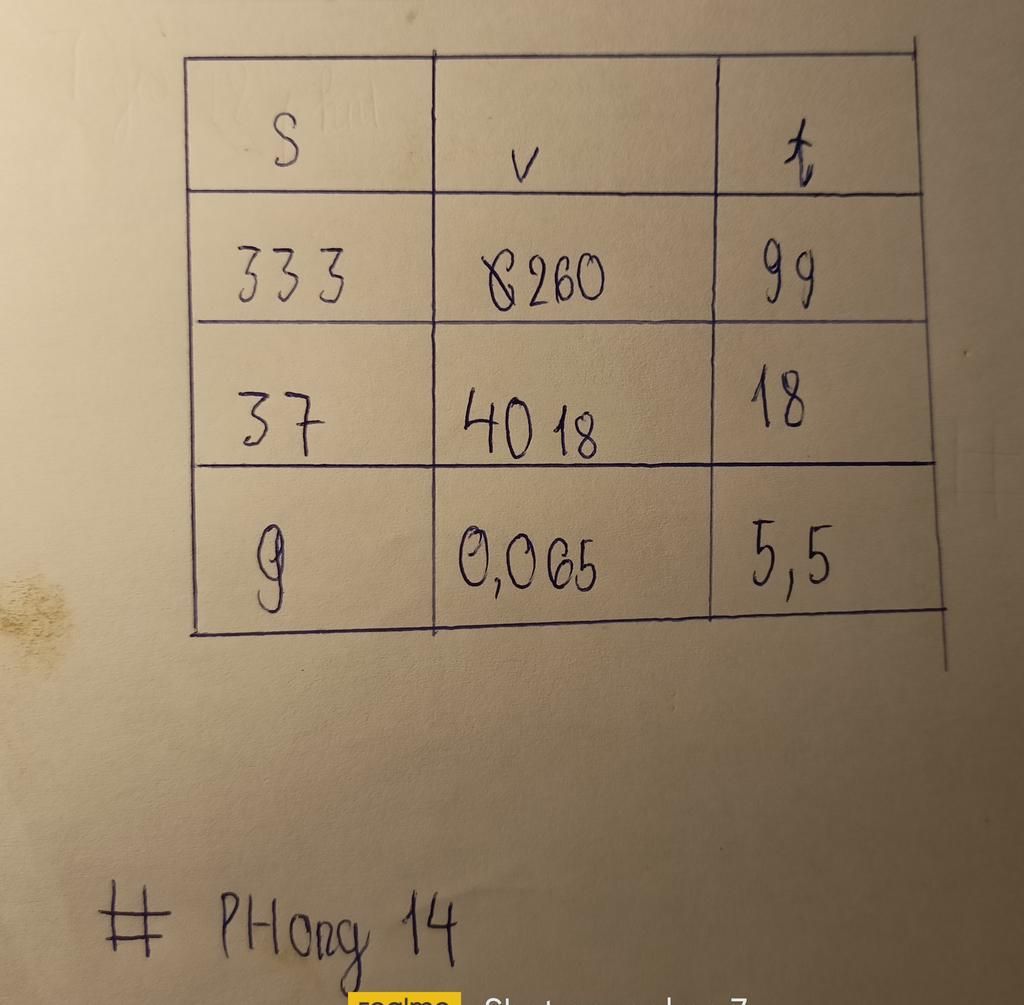 S v t
333 6260 99
37 4018 18
9 0,065 5,5
# PHong 14